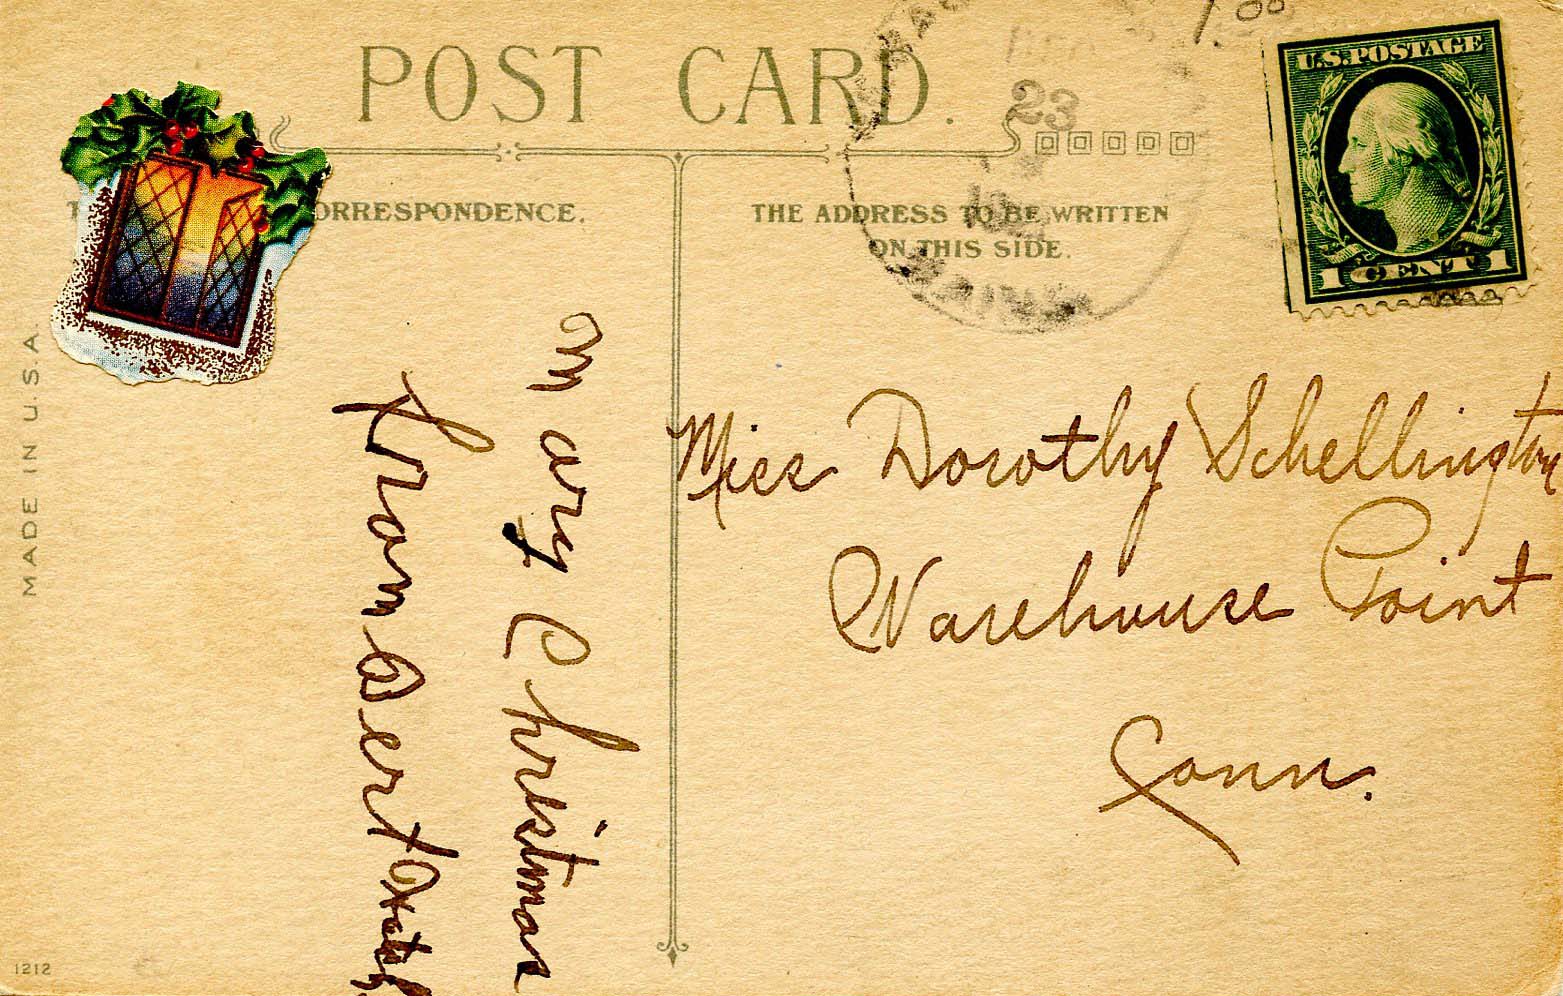 POST CARD.
ORRESPONDENCE.
THE ADDRESS TO BE WRITTEN
ON THIS SIDE.
23
U.S.POSTAGE
1 CENT 1
1.00
Mary Christmas
from Bert
Miss Dorothy Schellington
Warehouse Point
Conn.
MADE IN U.S.A.
1212